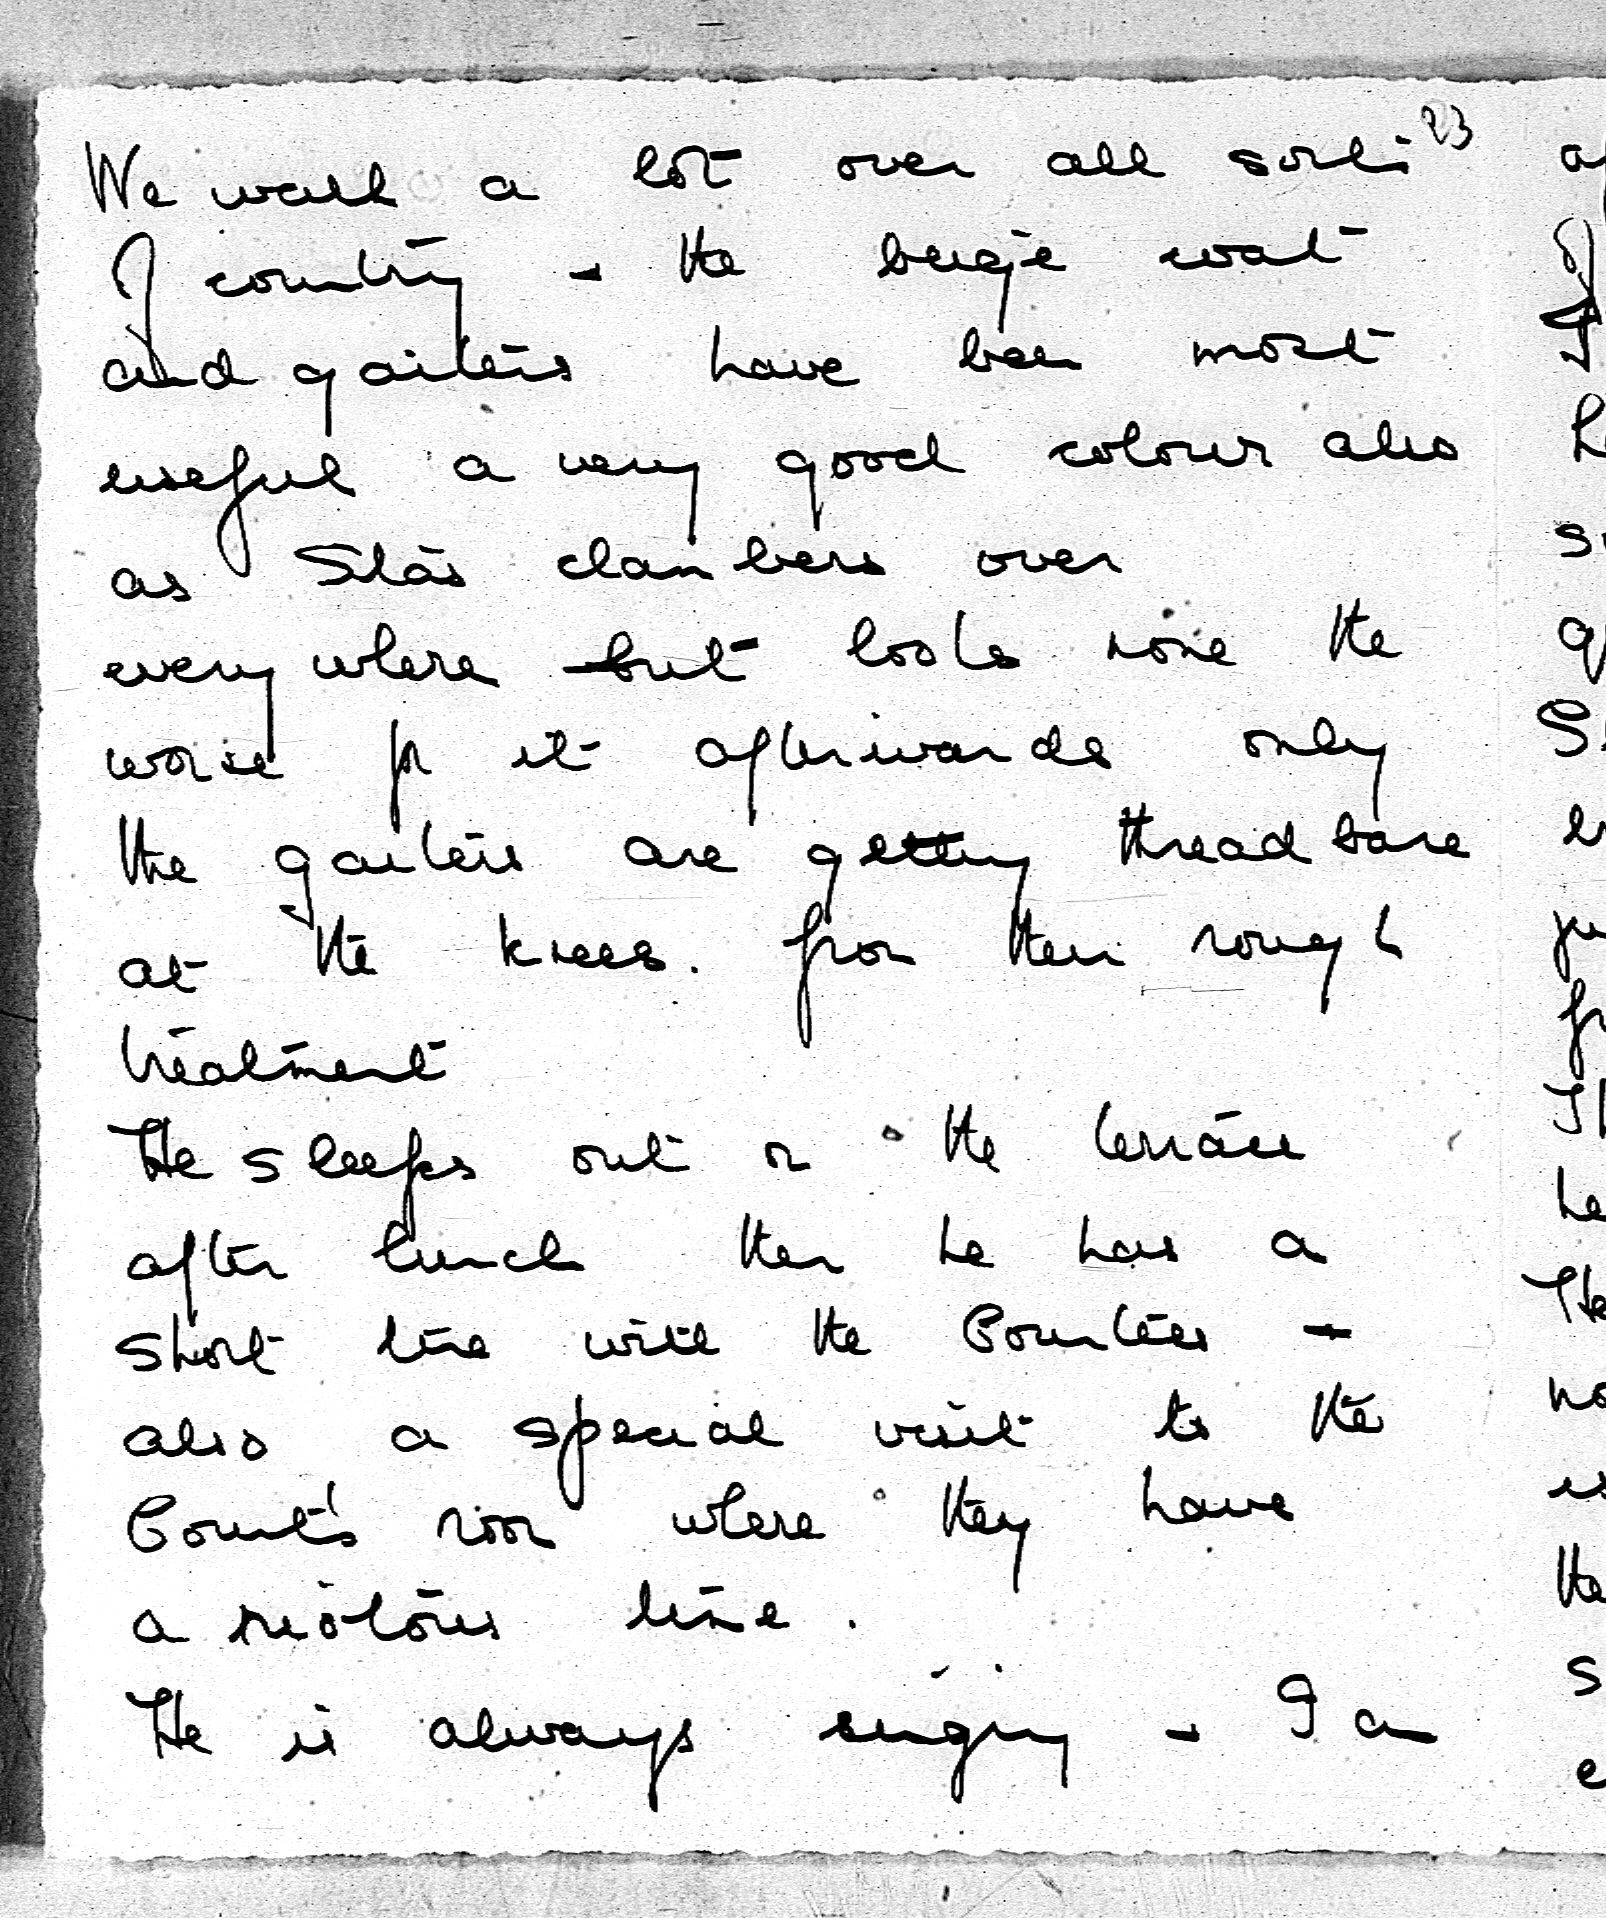 23
We walk a lot over all sorts
of country - the beige coat
and gaiters have been most
useful a very good colour also
as Stas clambers over
everywhere but looks none the
worse for it afterwards only
the gaiters are getting threadbare
at the knees. from their rough
treatment
He sleeps out on the terrace
after lunch then he has a
short time with the Countess -
also a special visit to the
Count's room where they have
a riotous time.
He is always singing - I am